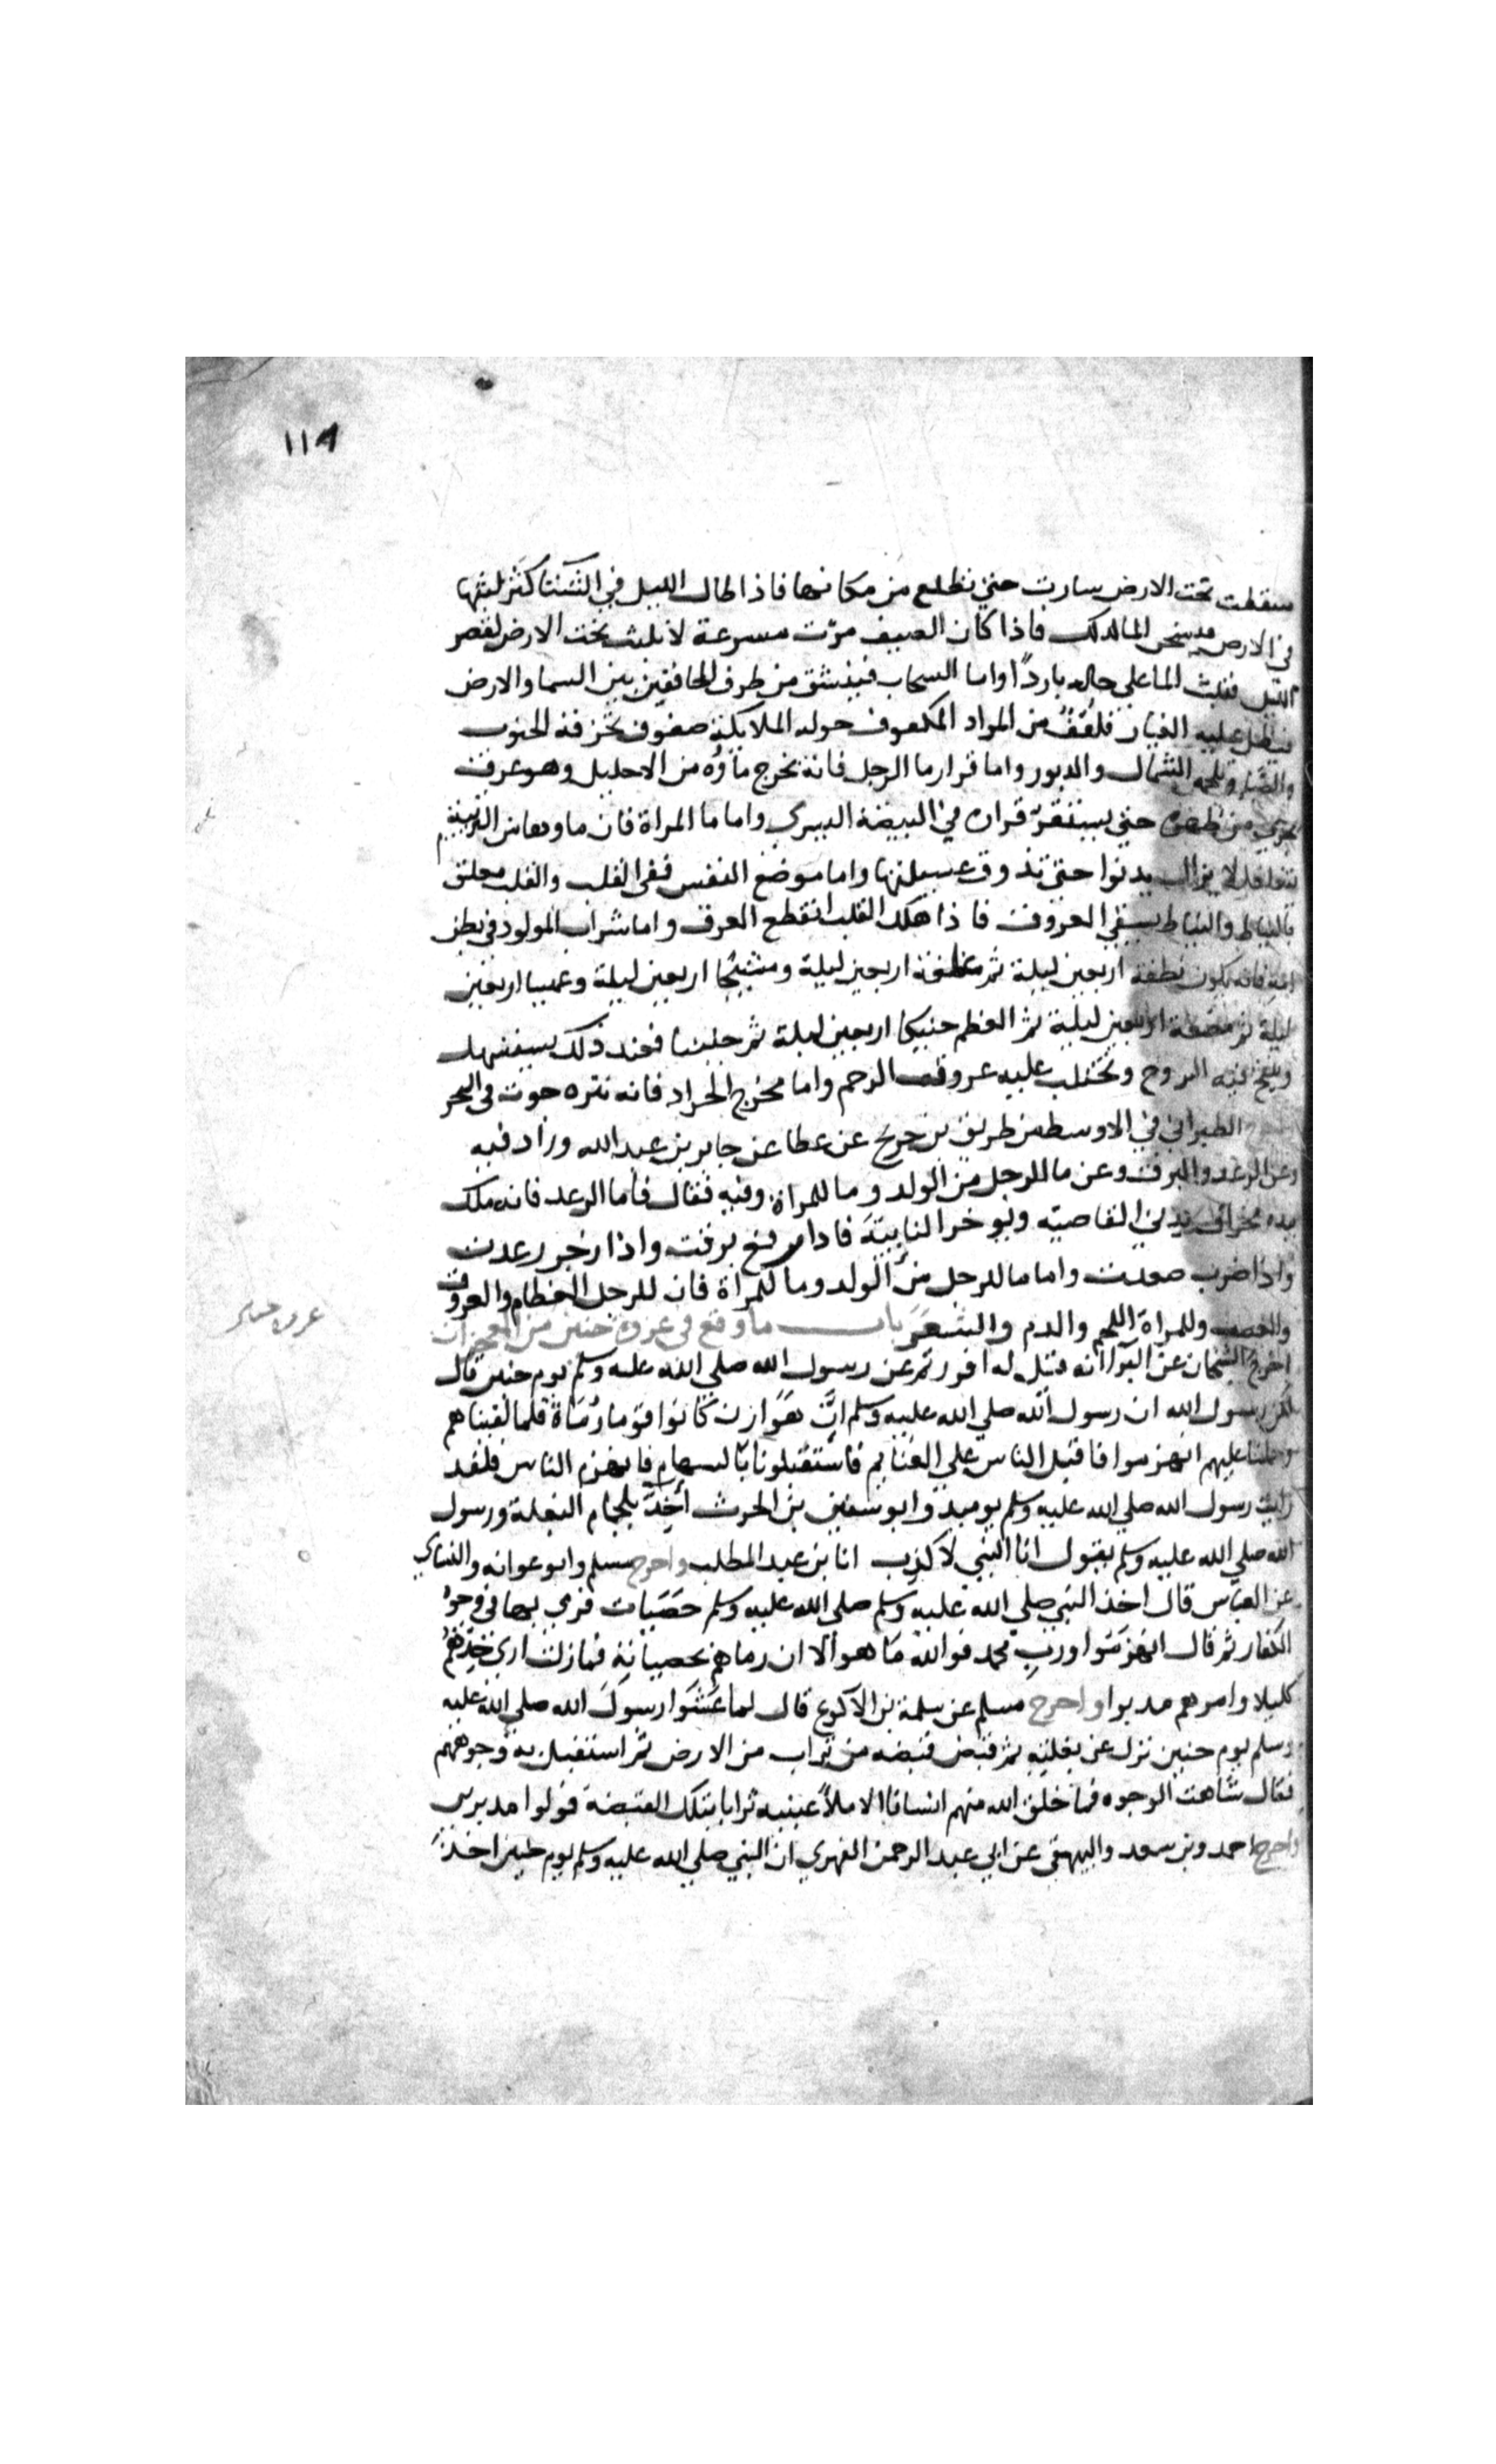 ١١٩
سقطت تحت الارض سارت حتي تطلع من مكانها فاذا طال الليل في الشتا كثر لبثها
في الارض فيسخن الما لذلك فاذا كان الصيف مرت مسرعة لا تلبث تحت الارض لقصر
الليل فثبت الما علي حاله باردًا واما السحاب فينشق من طرف الخافقين بين السما والارض
فيظل عليه الغبار فلفف من المزاد المكفوف حوله الملايكة صفوف تخرقه الجنوب
والصبا وتلحمه الشمال والدبور واما قرار ما الرجل فانة يخرج ماؤه من الاحليل وهو عرق
يجري من ظهره حتي يستقر قراره في البيضة اليسري واما ما المراة فان ماوها من التريبة
يتغلغل لا يزال يدنوا حتي تذوق عسيلتها واما موضع النفس ففي القلب والقلب معلق
بالنياط والنياط يسقي العروق فاذا هلك القلب انقطع العرق واما شراب المولود في بطن
امه فانه يكون نطفة اربعين ليلة ثم علقة اربعين ليلة ومشيجًا اربعين ليلة وعميسا اربعين
ليلة ثم مضغة اربعين ليلية ثم العظم حنيكا اربعين ليلة ثم جنينا فعند ذلك يستهل
وينفخ فيه الروح وتختلب عليه عروق الرحم واما مخرج الجراد فانه نثره حوت في البحر
الطبراني في الاوسط من طريق بن جريج عن عطا عن جابر بن عبد الله وزاد فيه
وعن الرعد والبرق وعن ما للرجل من الولد وما للمراة وفيه فقال فأما الرعد فانه ملك
بيده مخراق يدني القاصيه ويوخر النابيَة فاذا رفع برقت واذا زجر رعدت
واذا ضرب صعقت واما ما للرجل من الولد وما للمراة فان للرجل العظام والعروق
والعصب وللمراة اللحم والدم والشعَر باب ما وقع في غزوة حنين من المعجزات
اخرج الشيخان عن البرا انه قيل له افررتم عن رسول الله صلي الله عليه وسلم يوم حنين قال
لكن رسول الله ان رسول الله صلي الله عليه وسلم انَّ هَوَازن كانوا قوما رُمَاة فلما لقيناهم
وحملنا عليهم انهزموا فاقبل الناس علي الغنايم فاستقبلونا بالسهام فانهزم الناس فلقد
رايت رسول الله صلي الله عليه وسلم يوميد وابو سفين بن الحرث أخِذٌ بلجام البغلة ورسول
الله صلي الله عليه وسلم يقول انا النبي لا كذب انا بن عبد المطلب واخرج مسلم وابو عوانه والنساي
عن العباس قال اخذ النبي صلي الله عليه وسلم صلي الله عليه وسلم حَصَيَات فرمي بها في وجوُه
الكفار ثم قال انهزَمَوا وربِ محمد فوالله مَا هو الا ان رماهم بحصياته فما زلت اري حدّهُم
كليلا وامرهم مدبرا واخرج مسلم عن سلمة بن الاكوع قال لما غَشَوا رسولَ الله صلي الله عليه
وسلم يوم حنين نزل عن بغلته ثم قبض قبضه من تراب من الارض ثم استقبل به وجوههم
فقال شاهت الوجوه فما خلق الله منهم انسانا الا ملأ عينيه ترابا بتلك القبضة فولوا مدبرين
واخرج احمد وبن سعد والبيهقي عن ابي عبد الرحمن الفهري ان النبي صلي الله عليه وسلم يوم حنين اخذ